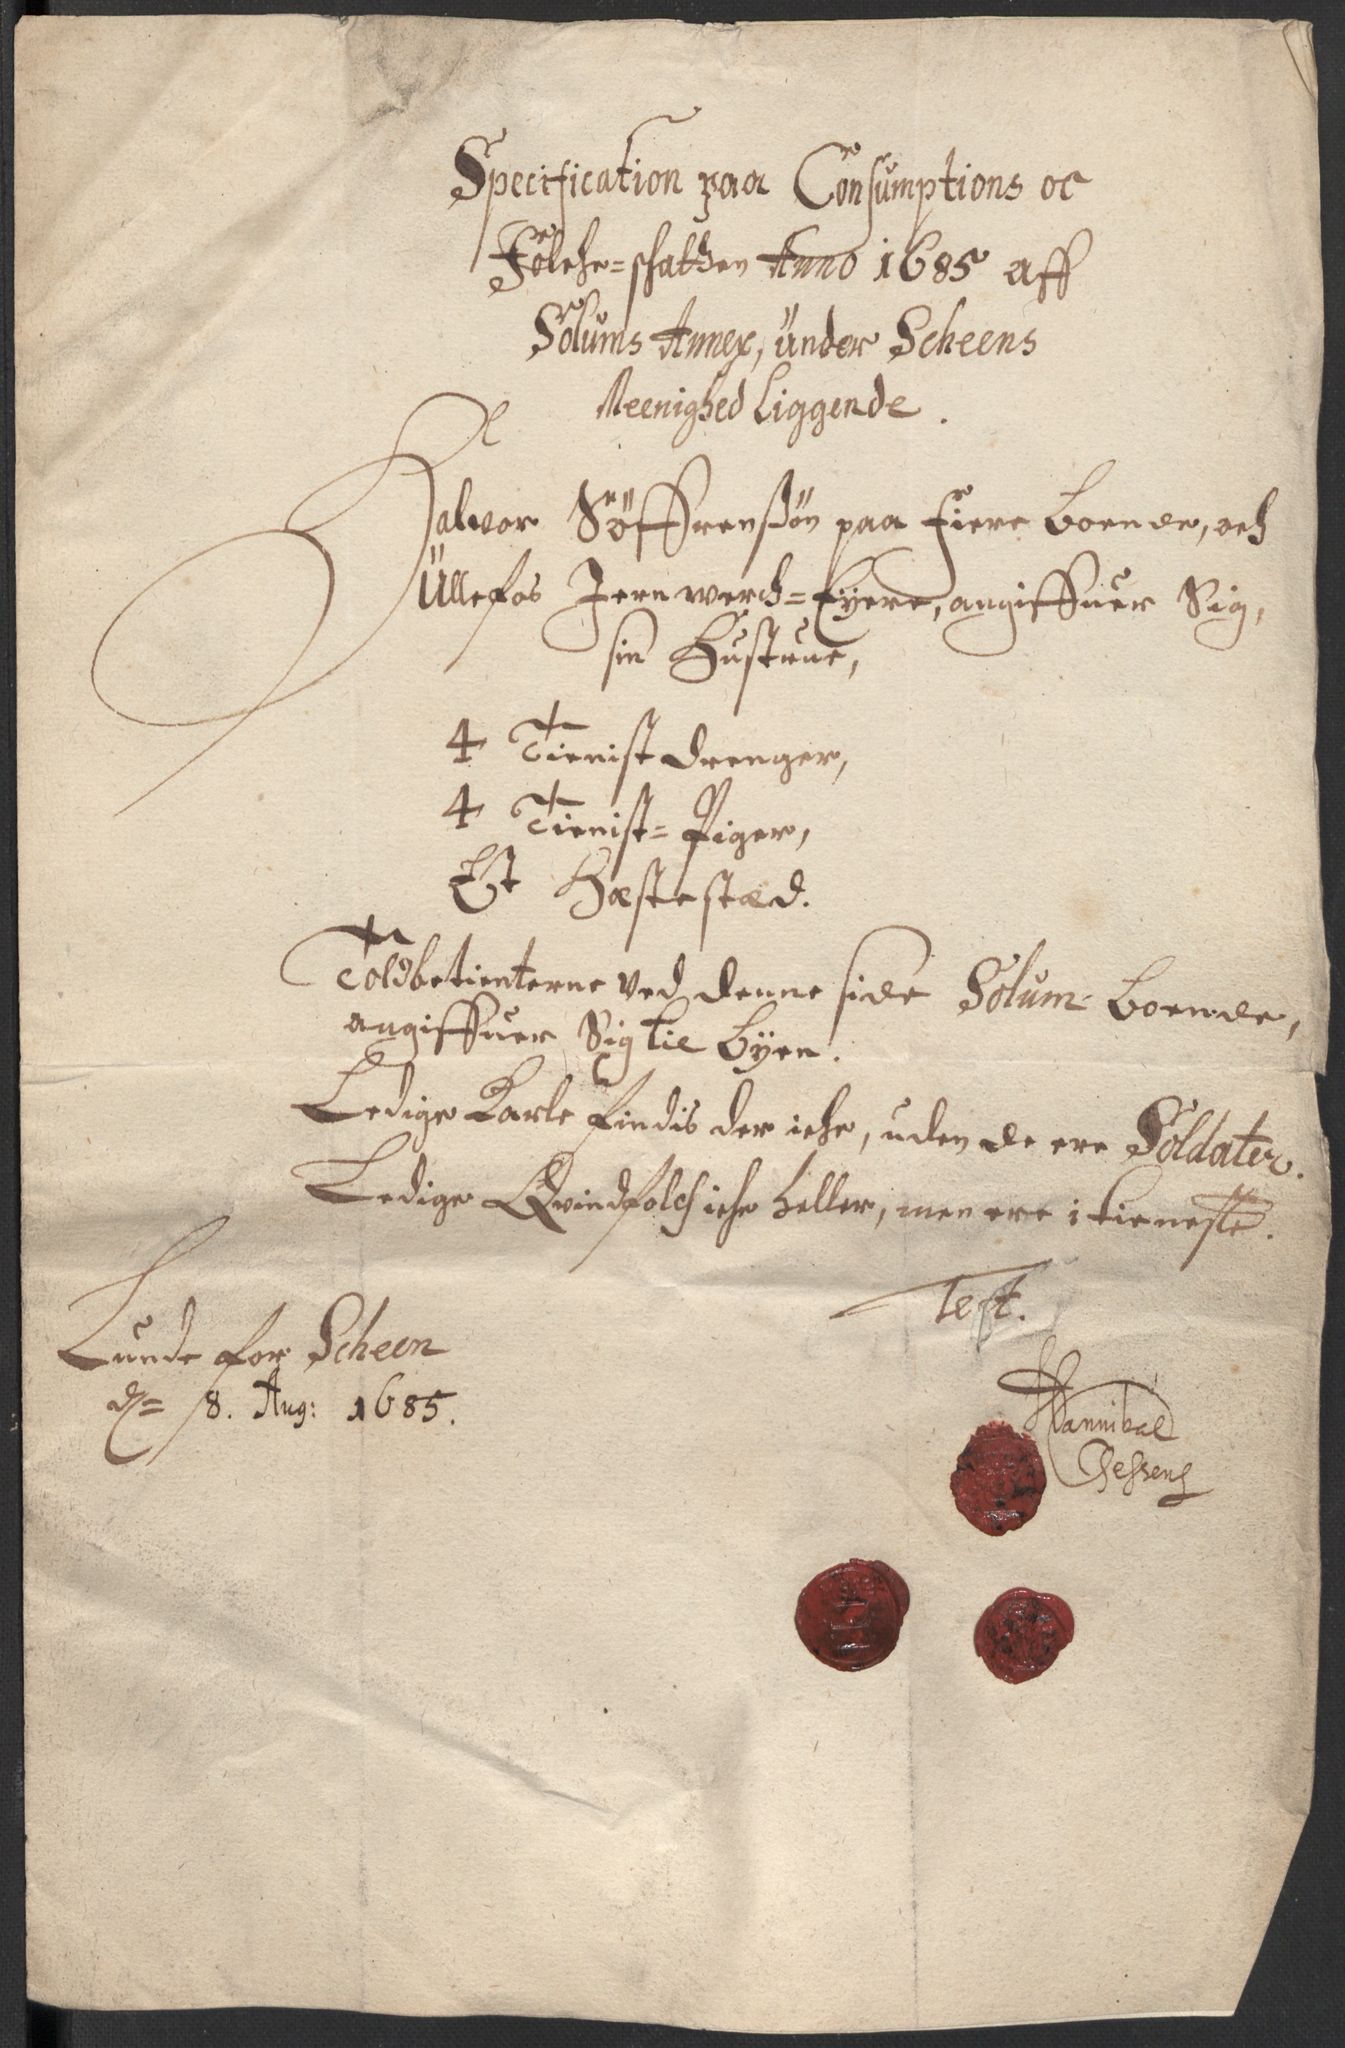 Specification paa Consumptions oc
Folche=schatten Anno 1685 aff
Solums Annex, ünder Scheens
Meenighed Liggende.
Halvor Söffrensøn paa Fiere boende, och
Üllefos Jernwerch=Eyere, angiffuer Sig,
sin Hustrue,
4 Tienist drenger,
4 Tienist=Piger,
Et Hæstestæd.
Toldbetienterne ved denne side Solum boende,
angiffuer Sig til Byen.
Ledige Karle findis der iche, uden de ere Soldater.
Ledige Qvindfolch iche heller, men ere i tieneste.
Test.
Lunde for Scheen
8. Aug: 1685.
Hannibal